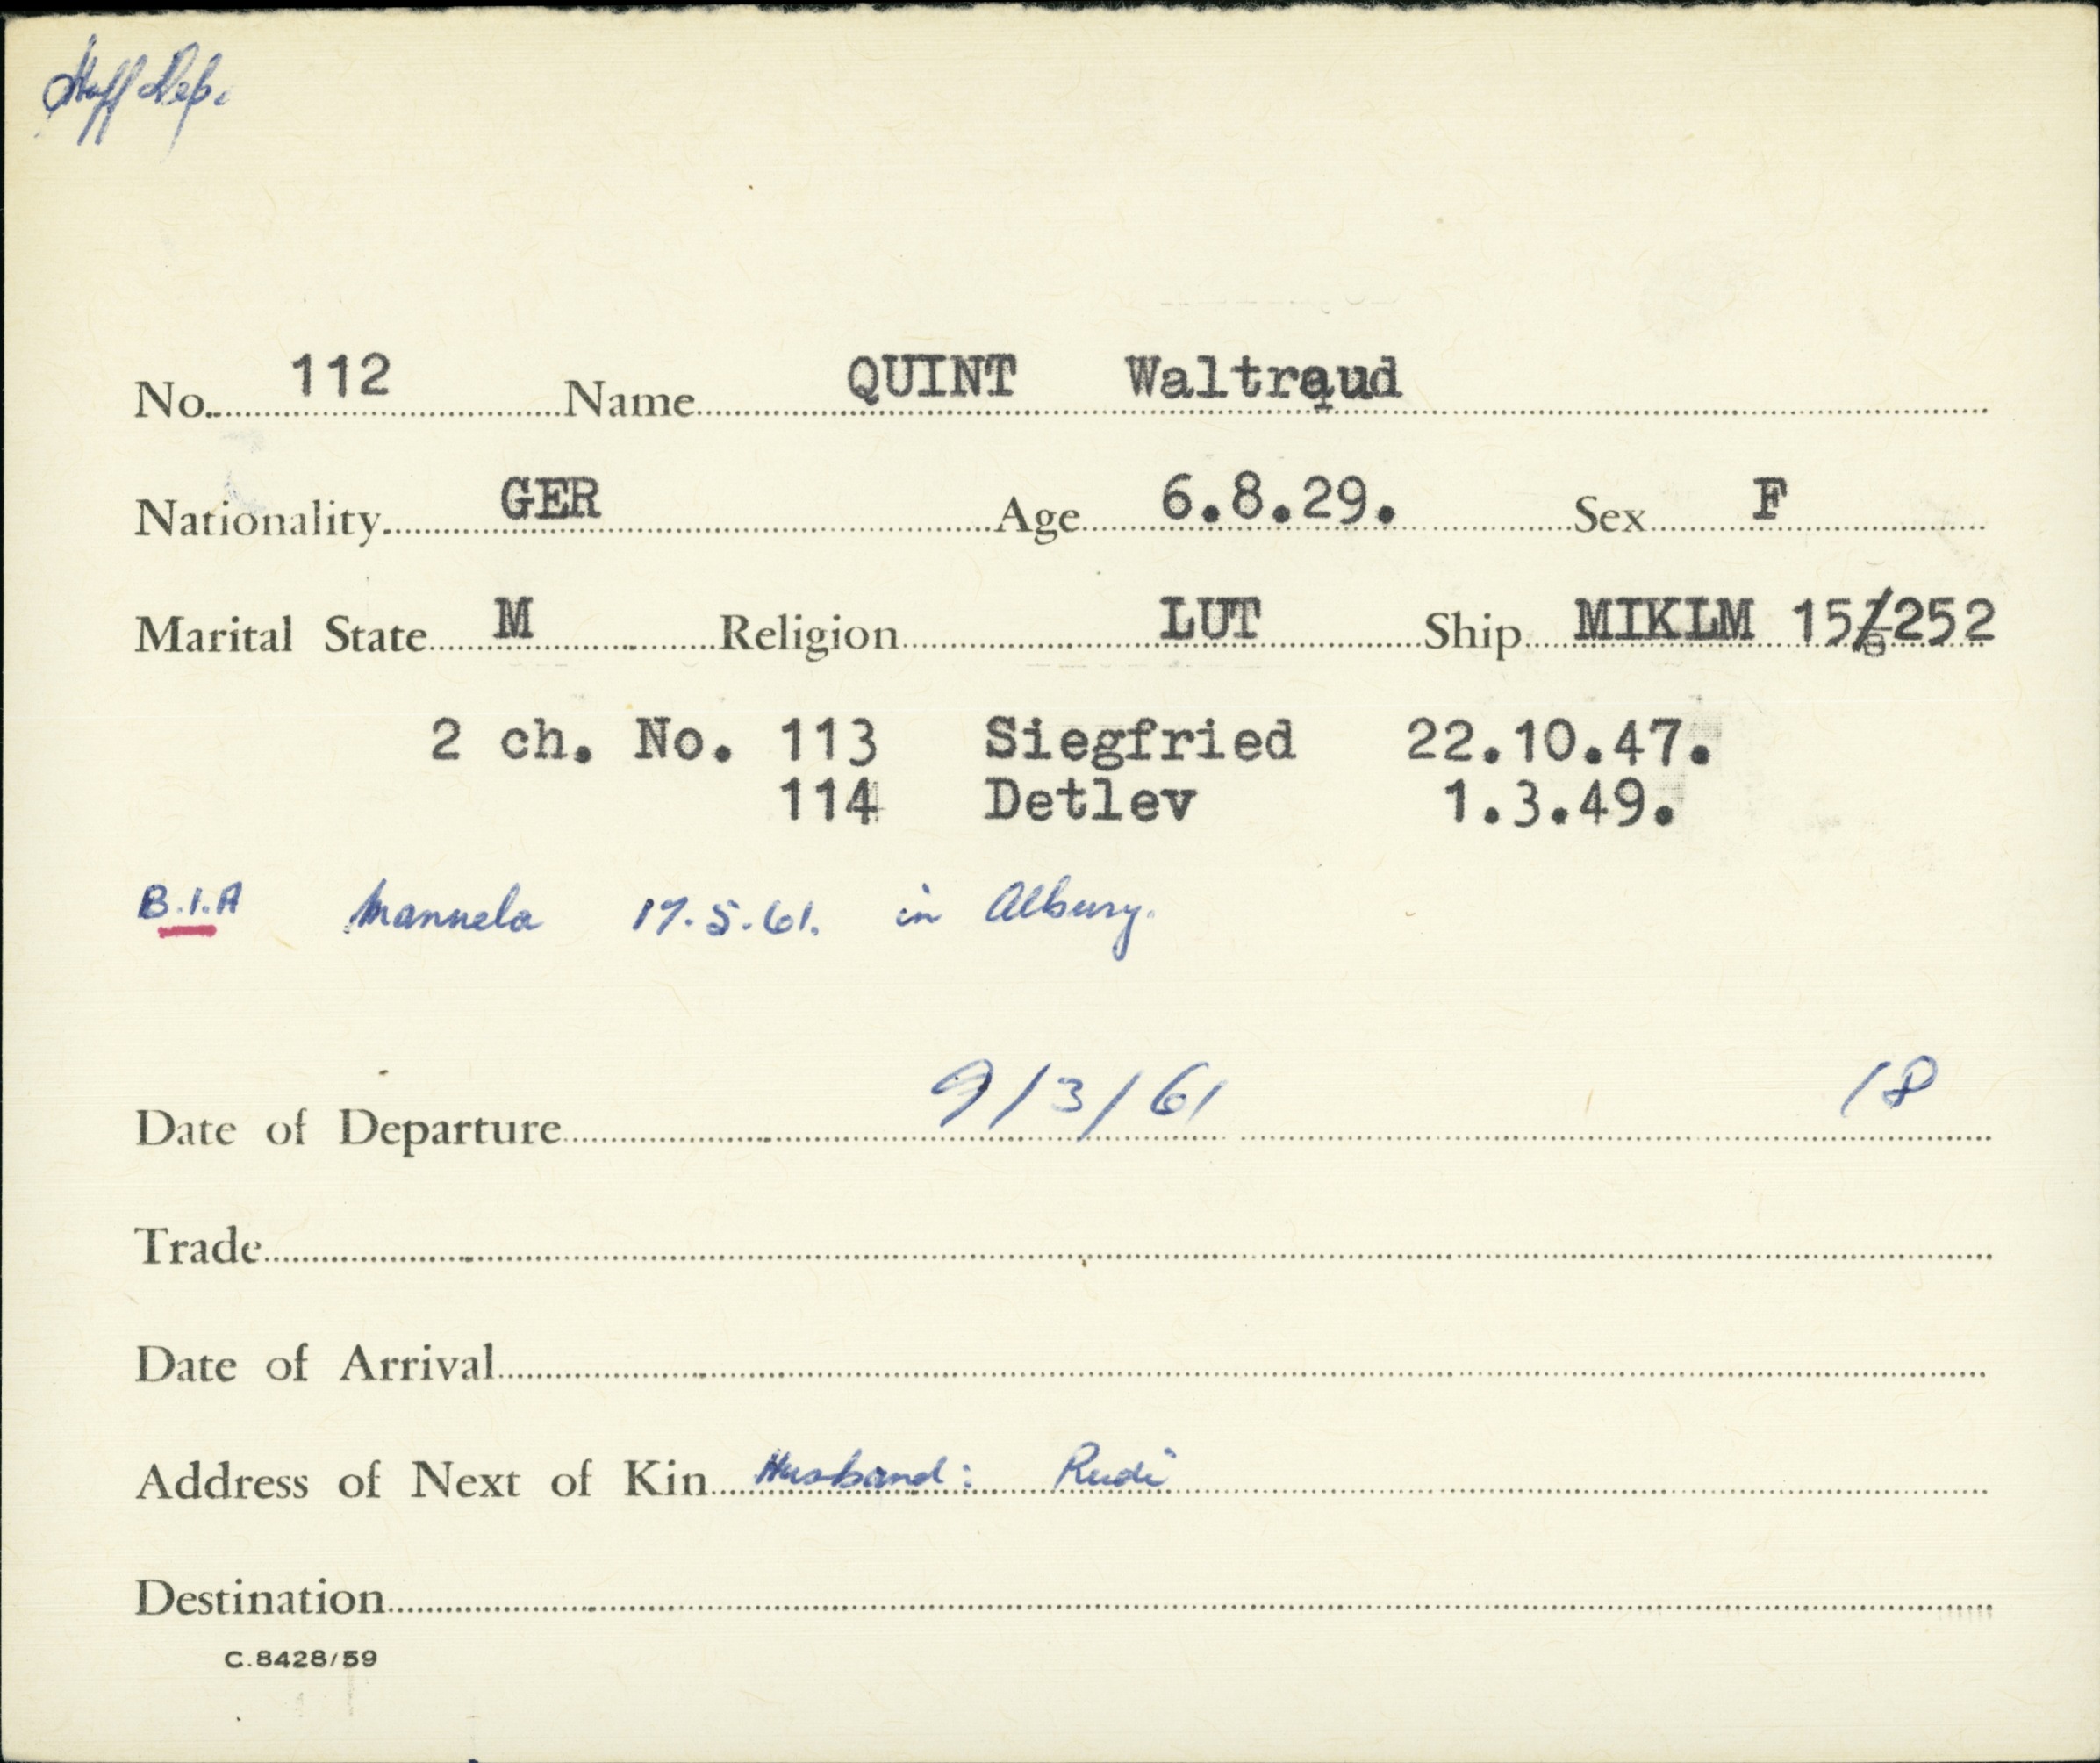 Staff Dep.
No. 112 Name QUINT Waltraud
Nationality GER Age 6.8.29. Sex F
Marital State M Religion LUT Ship MIKLM 15/252
2 ch. No. 113 Siegfried 22.10.47.
114 Detlev 1.3.49.
B.I.A Mannela 17.5.61. in Albury.
Date of Departure 9/3/61 18
Trade
Date of Arrival
Address of Next of Kin Husband: Rudi
Destination
C.8428/59